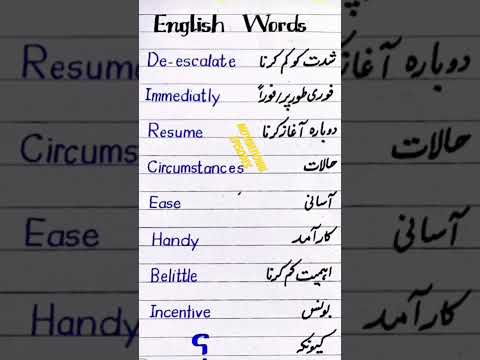 English Words
De-escalate شدت کو کم کرنا
Immediatly فوری طور پر/فوراً
Resume دوبارہ آغاز کرنا
Circumstances حالات
Ease آسانی
Handy کارآمد
Belittle اہمیت کم کرنا
Incentive بونس
کیونکہ
Resume
Circums
Ease
Handy
دوبارہ آغاز
حالات
آسانی
کارآمد